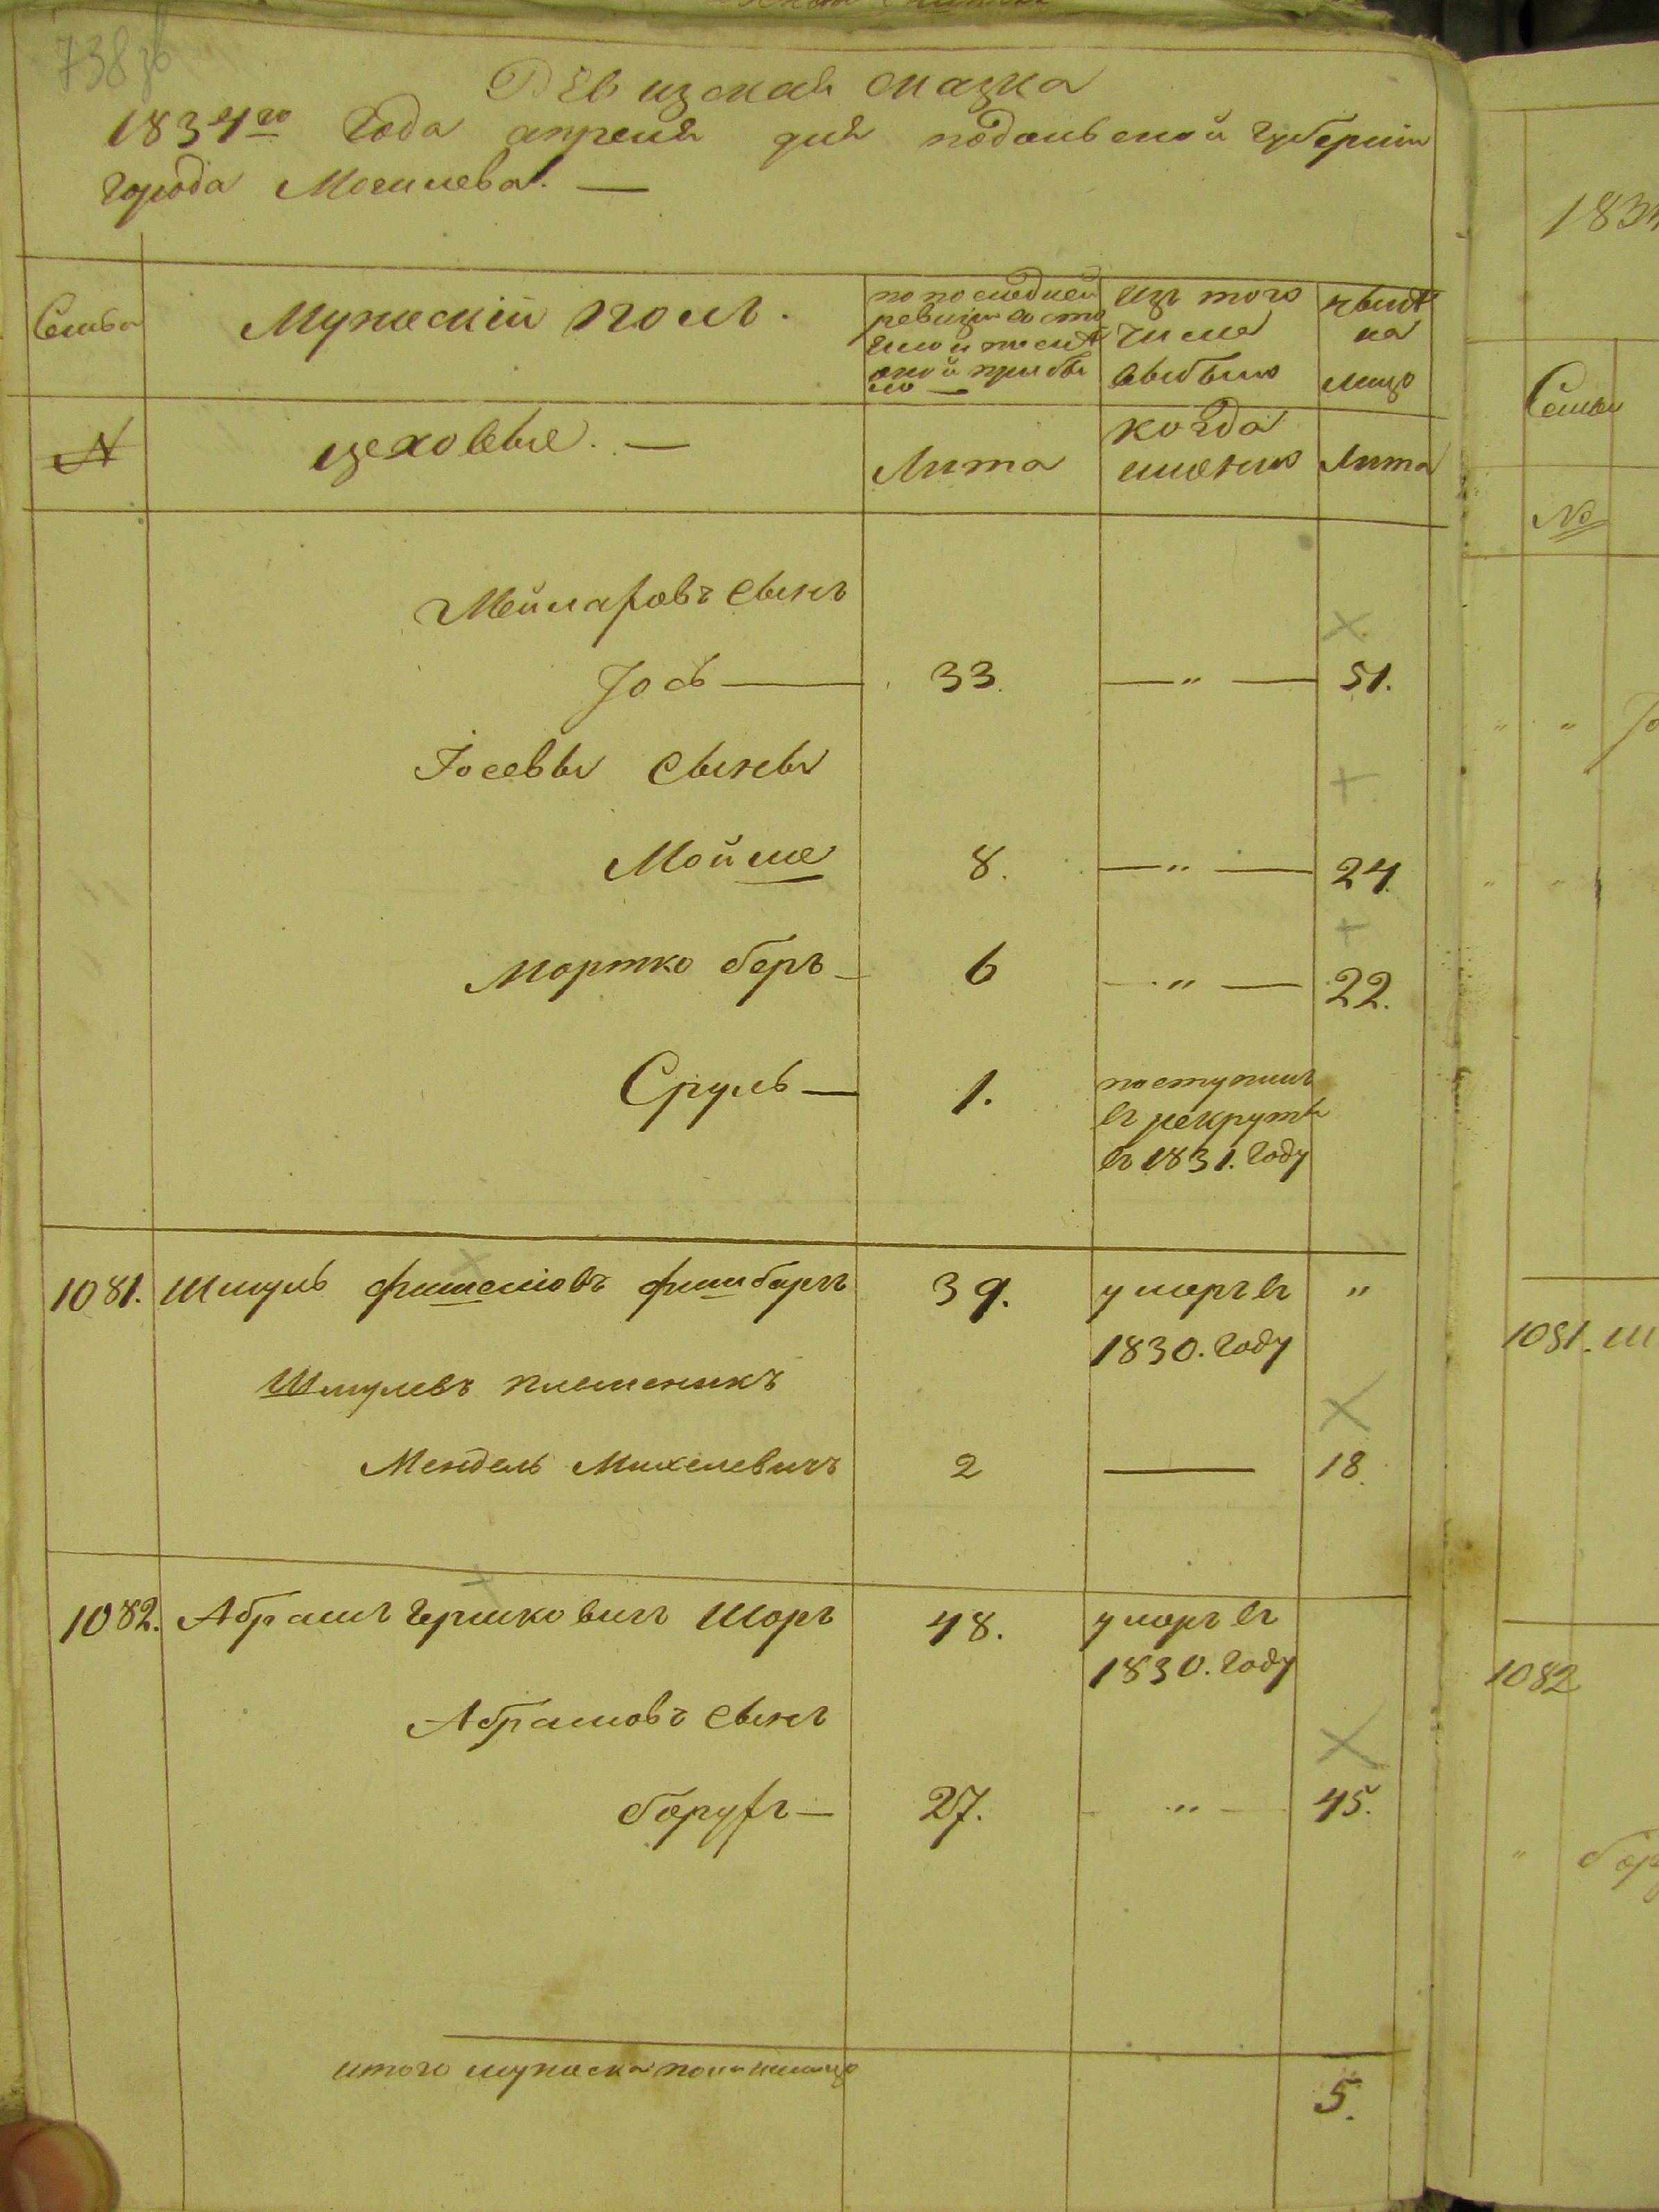 738 зв
Ревизская сказка
1834го Года апреля дня подольской Губернiи
Города Могилева. —
Семьи
Мужескiй полъ.
по последней
ревизiи состо
яло и после
оной прибы
ло —
изъ того
числа
выбыло
ныне
на
лицо
№
цеховые. —
Лета
когда
именно
Лета
Мейлаховъ сынъ
Iось — 33. — " — 51.
Iосевы сыны
Мойше 8. — " — 24.
Мортко беръ — 6 — " — 22.
Сруль — 1. поступилъ
въ рекруты
въ 1831. Году
1081. Шмуль фишелювъ фишбаргъ 39. умеръ въ "
1830. Году
Шмулевъ племеникъ
Мендель Михелевичъ 2 — 18.
1082. Абрамъ Гершковичъ Шоръ 48. умеръ въ
1830. Году
Абрамовъ сынъ
борухъ — 27. " 45.
итого мужеска пола налицо 5.
1834
Семьи
№
1081. Ш
1082
бор